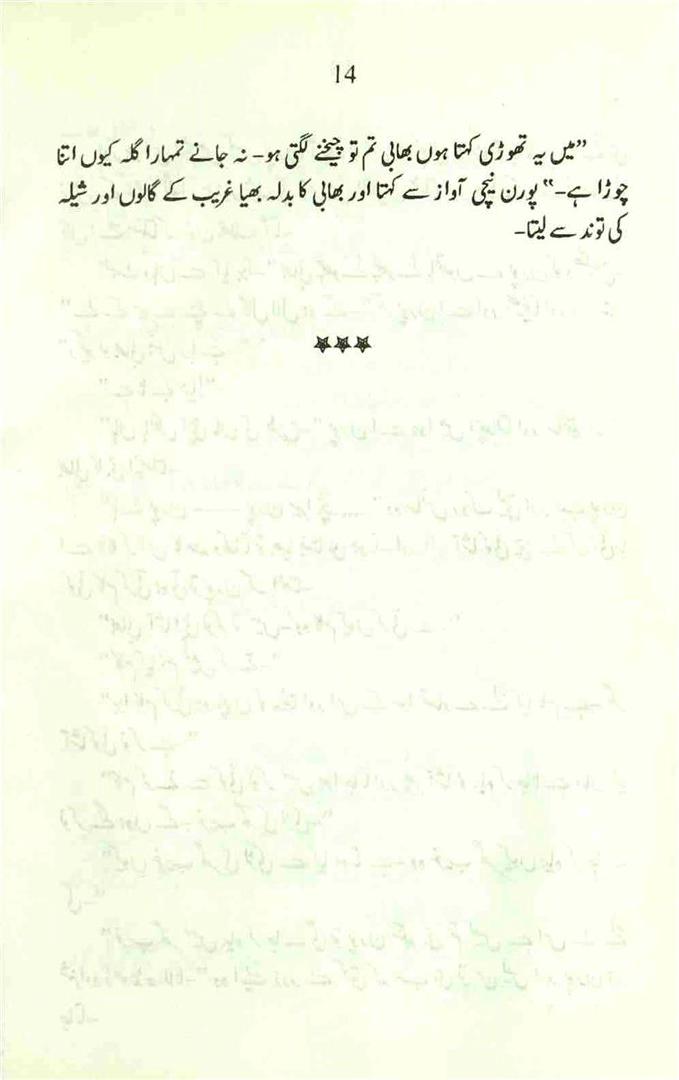 14
”میں یہ تھوڑی کہتا ہوں بھابی تم تو چیخنے لگتی ہو۔ نہ جانے تمہارا گلہ کیوں اتنا
چوڑا ہے۔“ پورن نیچی آواز سے کہتا اور بھابی کا بدلہ بھیا غریب کے گالوں اور شیلہ
کی توند سے لیتا۔